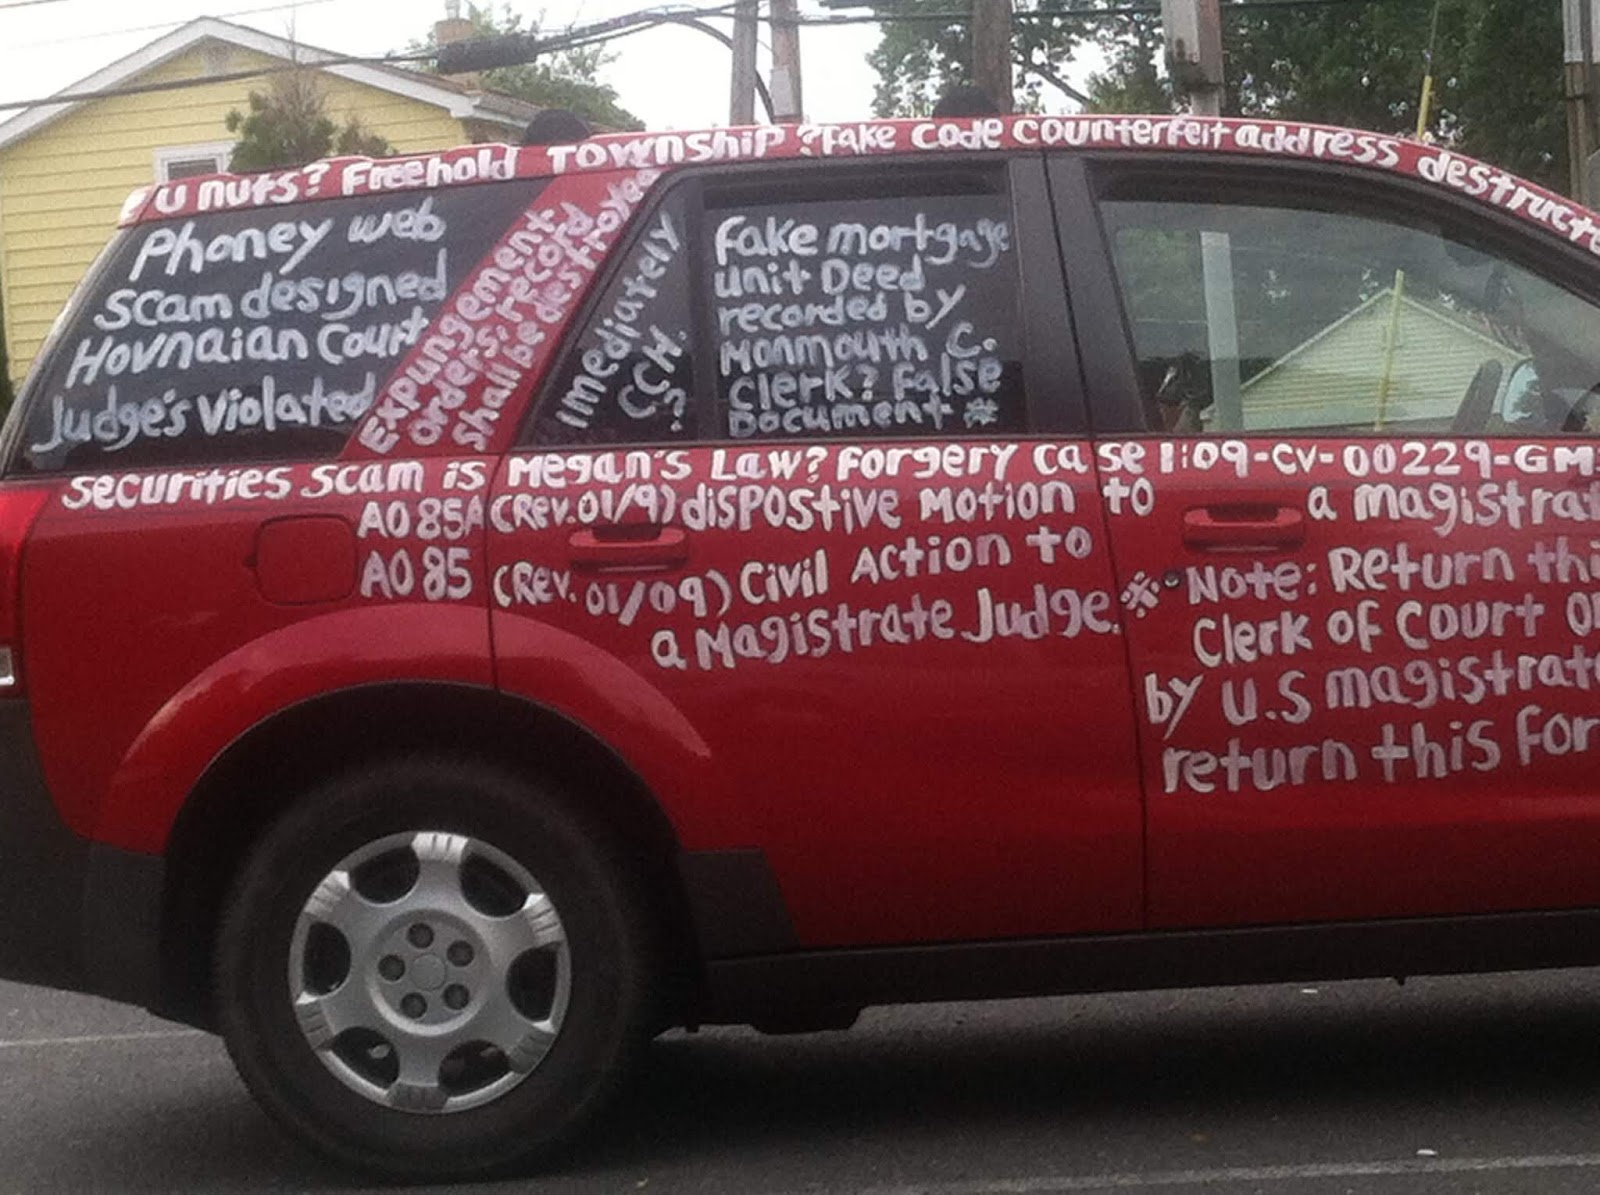 U nuts? Freehold Township? Fake code counterfeit address
Phoney web
scam designed
Hovnaian Court
Judge's Violated
Expungement
orders: record
shall be destroyed
Immediately
CCH.
?
Fake mortgage
unit Deed
recorded by
Monmouth C.
Clerk? False
Document *
securities scam is Megan's Law? Forgery case 1:09-CV-00229-GM
AO 85A (Rev. 01/9) dispostive Motion to a magistrat
AO 85 (Rev. 01/09) Civil Action to
a Magistrate Judge.
※ Note: Return thi
Clerk of Court
by U.S magistrat
return this for